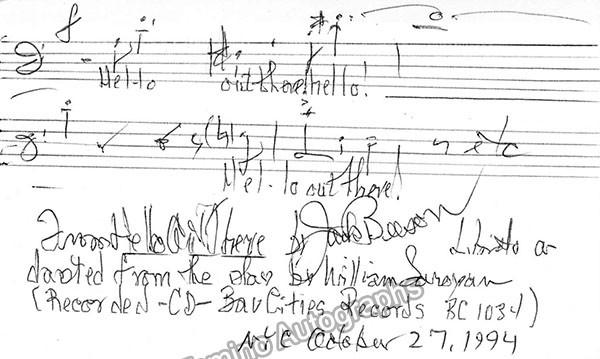 Hel-lo out there! hello!
etc
Hel-lo out there!
From Hello Out There by Jack Beeson Libretto a-
dapted from the play by William Saroyan
(Recorded -CD- Bay Cities Records BC 1034)
NYC October 27, 1994
Tamino Autographs